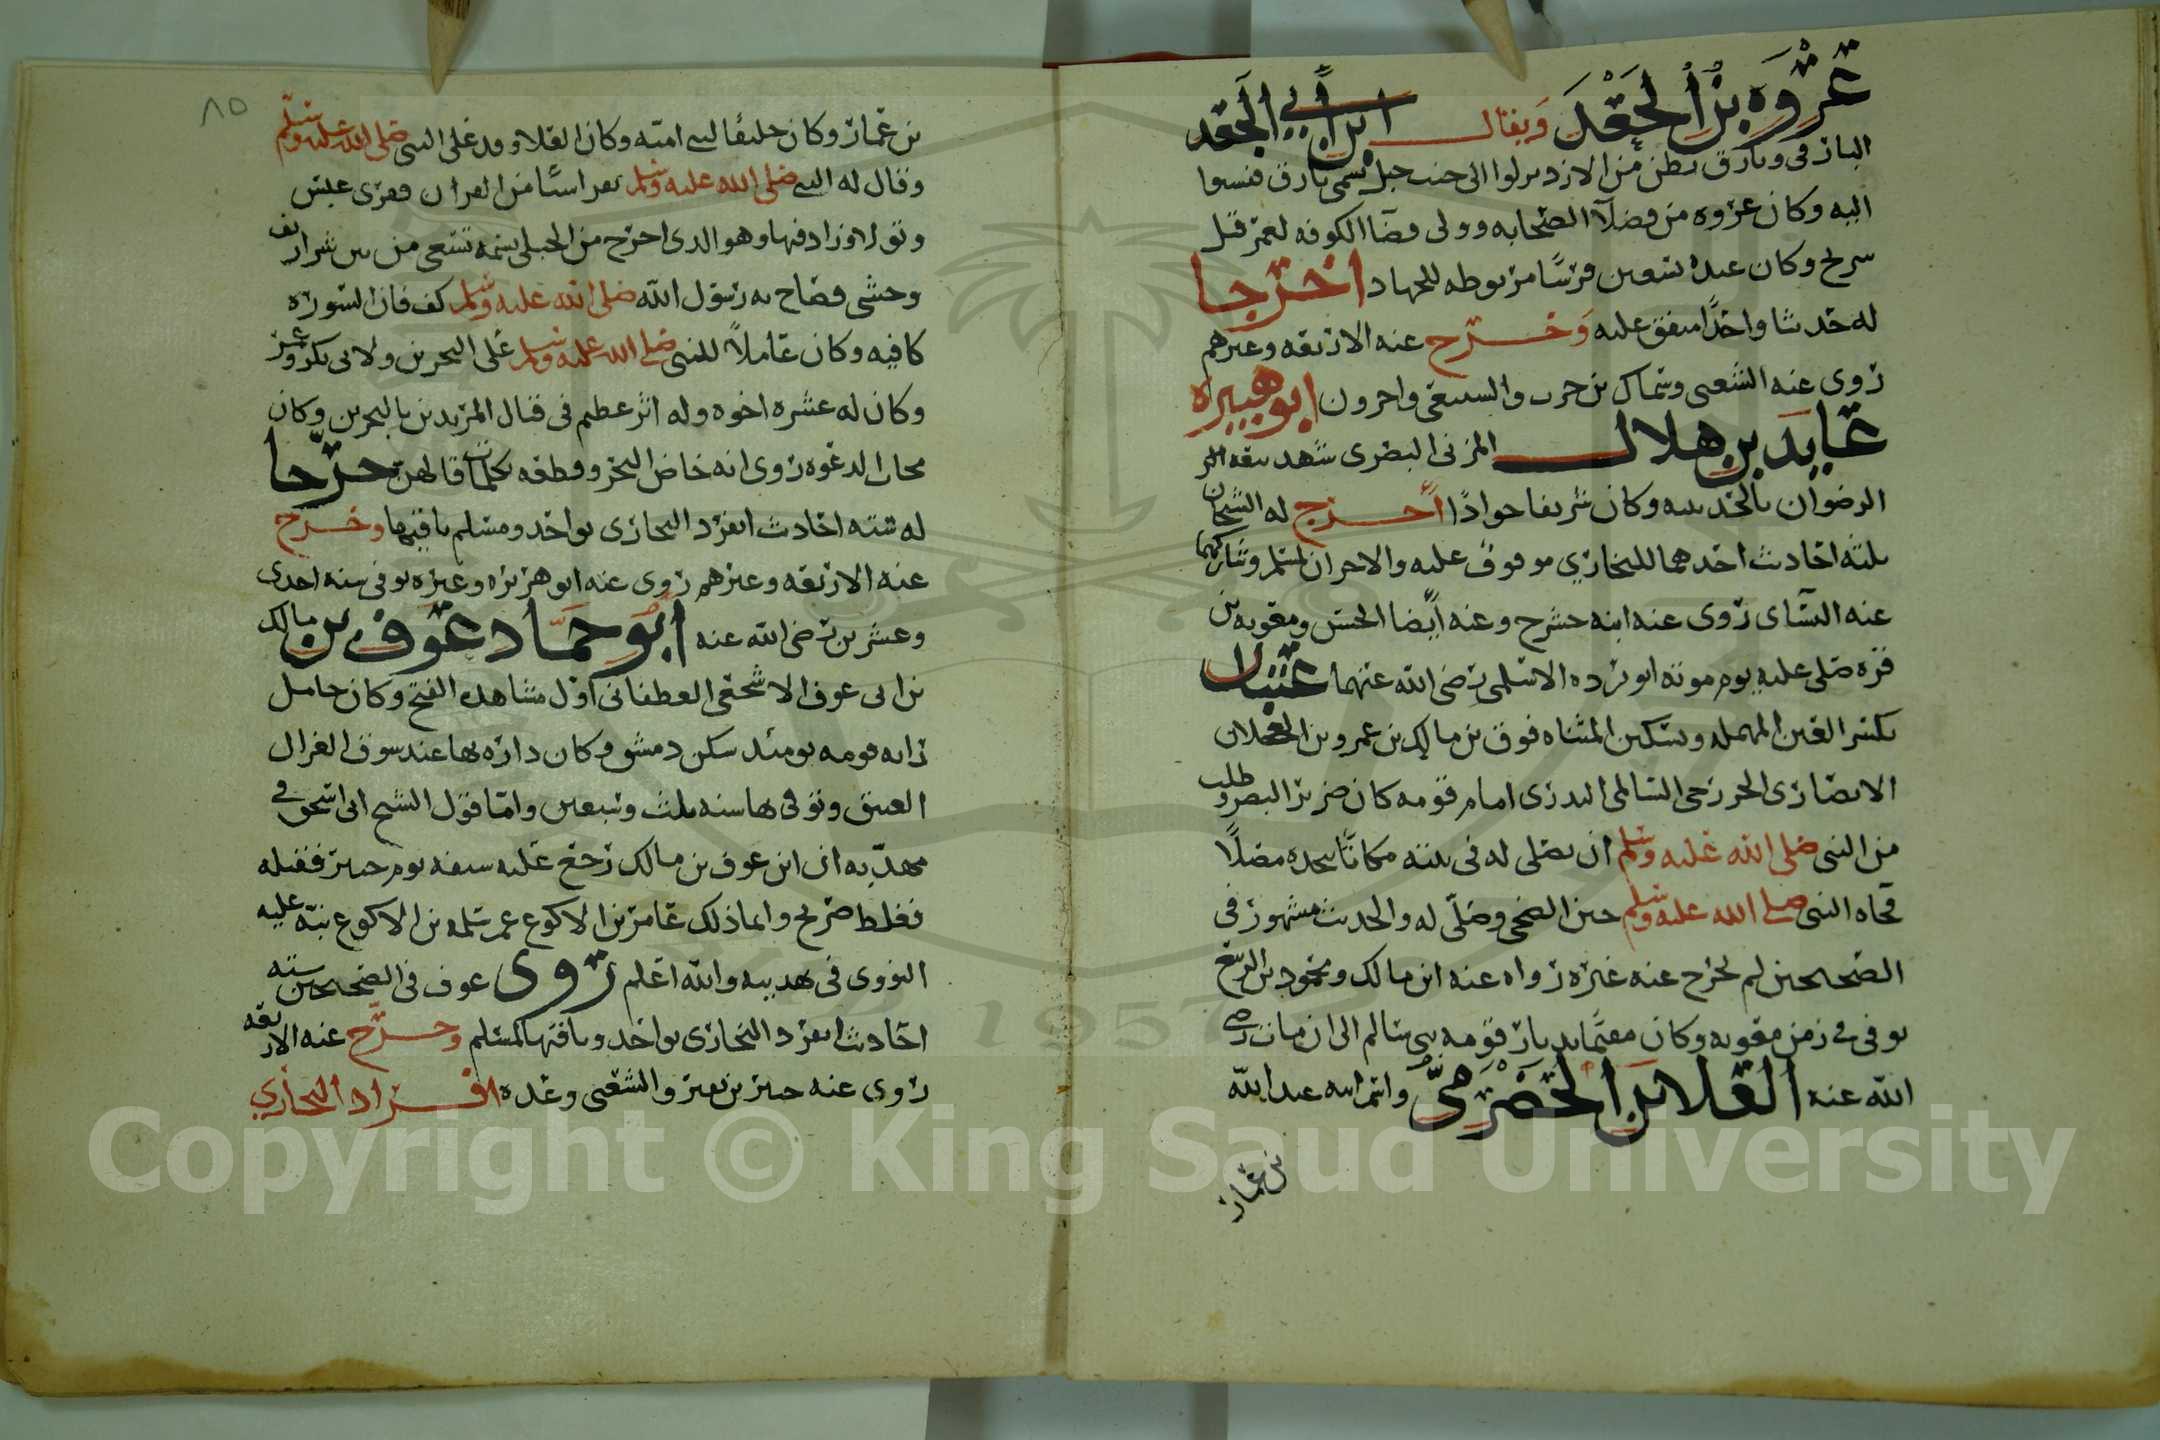 عروة بن الجعد ويقال ابن أبي الجعد
البارقي وبارق بطن من الازد نزلوا الى جنب جبل يسمى بارق فنسبوا
اليه وكان عروه من فضلآ الصحابه وولى قضآ الكوفه لعمر قبل
سريح وكان عنده سبعين فرسًا مربوطه للجهاد اخرجا
له حديثا واحدًا متفق عليه وخرج عنه الاربعه وغيرهم
روى عنه الشعبي وسماك بن حرب والسبيعي واخرون ابو هبيره
عايد بن هلال المزني البصرى شهد بيعه
الرضوان بالحديبيه وكان شريفا جوادًا أخرج له الشيخان
ثلثه احاديث احدهما للبخاري موقوف عليه والاخران لمسلم وشاركهما
عنه النسآى روى عنه ابنه حشرج وعنه أيضا الحسن ومعويه بن
قره صلى عليه يوم موته ابو برزه الاسلمي رضي الله عنهما عتبان
بكسر العين المهمله وتسكين المثناه فوق بن مالك بن عمرو بن العجلان
الانصارى الخزرجى السالمى البدرى امام قومه كان ضرير البصر وطلب
من النبى صلى الله عليه وسلم ان يصلى له في بيته مكانًا يتخده مصلاً
فجاه النبى صلى الله عليه وسلم حين الضحى وصلّى له والحديث مشهور في
الصحيحين لم يخرج عنه غيره رواه عنه انس مالك ومحمود بن الربيع
توفى في زمن معويه وكان مقيمًا بديار قومه بني سالم الى ان مات رضي
الله عنه العلا بن الحضرميّ واسم ابيه عبد الله
بن عمار
٨٥
بن عمار وكان حليفًا لبني اميّه وكان العلا وفد على النبى صلى الله عليه وسلم
وقال له النبي صلى الله عليه وسلم تقرا شيًا من القران فقرى عبس
وتولا وزاد فيها وهو الدى اخرج من الحبلى نسمه تسعى من بين شراسيف
وحشى فصاح به رسول الله صلى الله عليه وسلم كف فان السوره
كافيه وكان عاملاً للنبى صلى الله عليه وسلم على البحرين ولابى بكر وعمر
وكان له عشره اخوه وله اثر عظيم في قتال المرتدين بالبحرين وكان
مجاب الدعوه روى انه خاض البحر وقطعه بكلمات قالهن خرّجا
له سته احاديث انفرد البخارى بواحد ومسلم باقيها وخرج
عنه الاربعه وغيرهم روى عنه ابو هريره وغيره توفى سنه احدى
وعشرين رضى الله عنه أبو حماد عوف بن مالك
بن ابى عوف الاشجعى الغطفانى اول مشاهده الفتح وكان حامل
رايه قومه يومئد سكن دمشق وكان داره بها عند سوق الغزل
العتيق وتوفى بها سنه ثلث وسبعين وامّا قول الشيح ابى اسحق في
مهدّبه ان ابن عوف بن مالك رجع عليه سيفه يوم خيبر فقتله
فغلط صريح وانما ذلك عامر بن الاكوع عم سلمه بن الاكوع نبّه عليه
النووى فى تهديبه والله اعلم روى عوف فى الصحيحين سته
احاديث انفرد البخارى بواحد وباقيها لمسلم وخرّج عنه الاربعه
روى عنه جبير بن نفير والشعبى وعده افراد البخاري
Copyright © King Saud University
1957